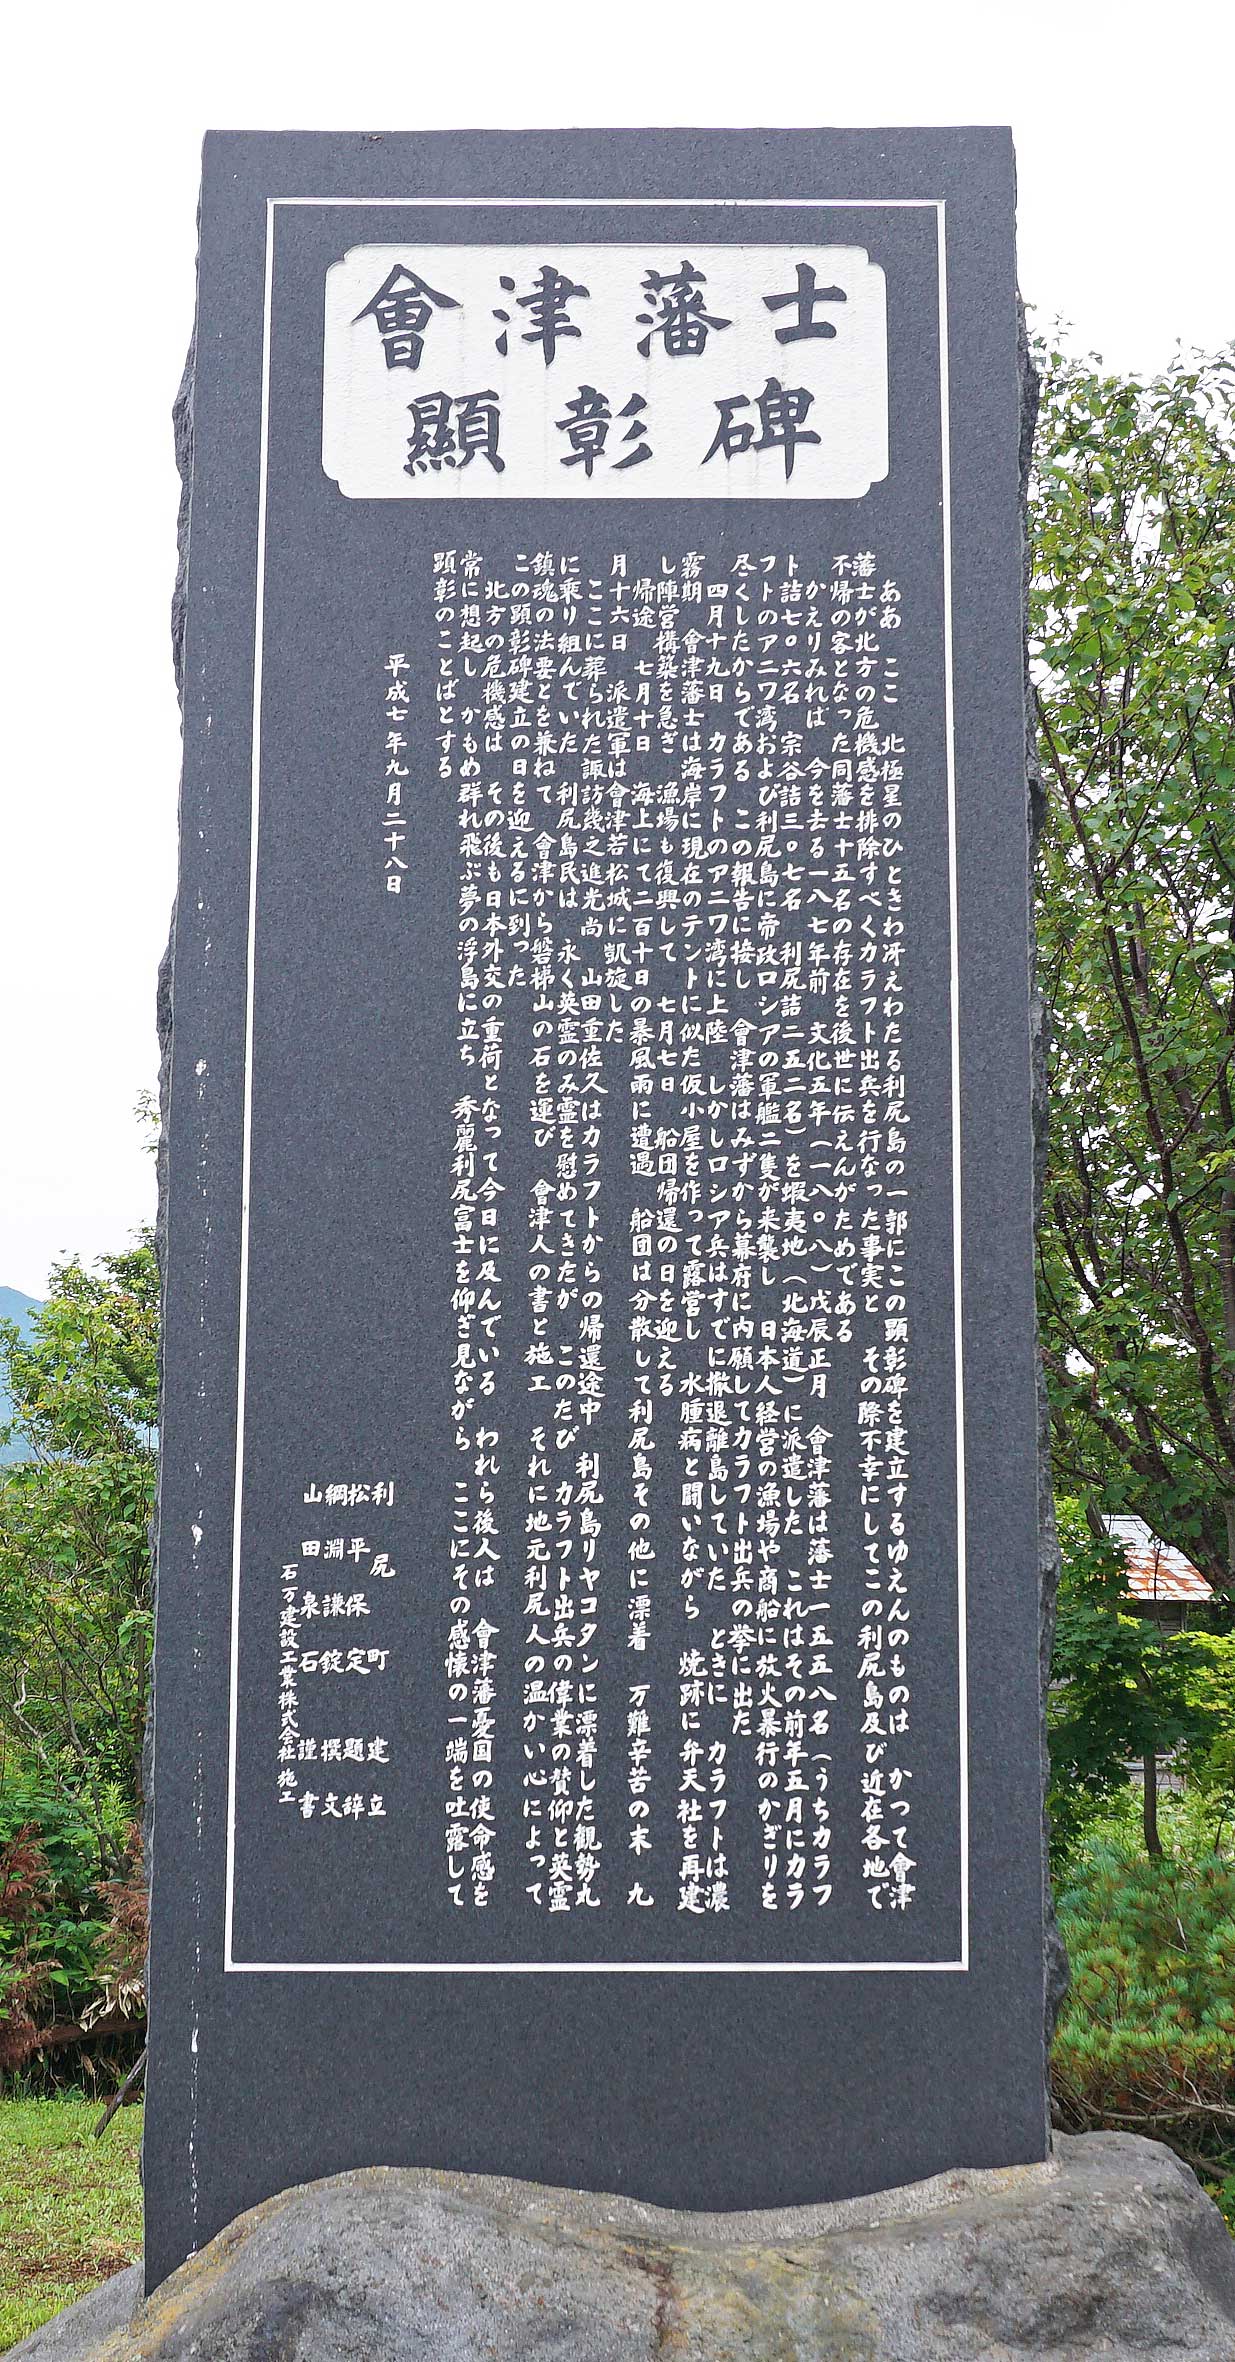 會津藩士
顯彰碑
ああ ここ 北極星のひときわ冴えわたる利尻島の一郭にこの顕彰碑を建立するゆえんのものは かつて會津
藩士が北方の危機感を排除すべくカラフト出兵を行なった事実と その際不幸にしてこの利尻島及び近在各地で
不帰の客となった同藩士十五名の存在を後世に伝えんがためである
かえりみれば 今を去る一八七年前 文化五年(一八〇八)戊辰正月 會津藩は藩士一五五八名(うちカラフ
ト詰七〇六名 宗谷詰三〇七名 利尻詰二五二名)を蝦夷地(北海道)に派遣した これはその前年五月にカラ
フトのアニワ湾および利尻島に帝政ロシアの軍艦二隻が来襲し 日本人経営の漁場や商船に放火暴行のかぎりを
尽くしたからである この報告に接し 會津藩はみずから幕府に内願してカラフト出兵の挙に出た
四月十九日 カラフトのアニワ湾に上陸 しかしロシア兵はすでに撤退離島していた ときに カラフトは濃
霧期 會津藩士は海岸に現在のテントに似た仮小屋を作って露営し 水腫病と闘いながら 焼跡に弁天社を再建
し陣営構築を急ぎ 漁場も復興して 七月七日 船団帰還の日を迎える
帰途 七月十日 海上にて二百十日の暴風雨に遭遇 船団は分散して利尻島その他に漂着 万難辛苦の末 九
月十六日 派遣軍は會津若松城に凱旋した
ここに葬られた諏訪幾之進光尚 山田重佐久はカラフトからの帰還途中 利尻島リヤコタンに漂着した観勢丸
に乗り組んでいた 利尻島民は 永く英霊のみ霊を慰めてきたが このたび カラフト出兵の偉業の賛仰と英霊
鎮魂の法要とを兼ねて 會津から磐梯山の石を運び 會津人の書と施工 それに地元利尻人の温かい心によって
この顕彰碑建立の日を迎えるに到った
北方の危機感は その後も日本外交の重荷となって今日に及んでいる われら後人は 會津藩憂国の使命感を
常に想起し かもめ群れ飛ぶ夢の浮島に立ち 秀麗利尻富士を仰ぎ見ながら ここにその感懐の一端を吐露して
顕彰のことばとする
平成七年九月二十八日
利尻町 建立
松平保定 題辞
綱淵謙錠 撰文
山田泉石 謹書
石万建設工業株式会社 施工